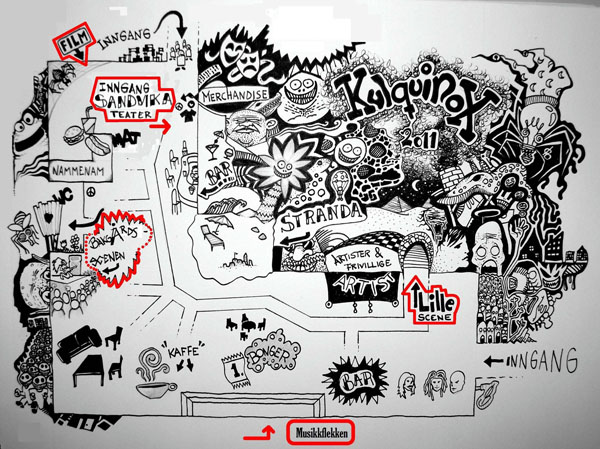 FILM
INNGANG
INNGANG
SANDVIKA
TEATER
MERCHANDISE
KulquinoX
2011
MAT
NAMMENAM
BAR
WC
STRANDA
BAKGÅRDS
SCENEN
ARTISTER &
FRIVILLIGE
ARTIST
Lille
SCENE
INNGANG
"KAFFE"
1.
BONGER
BAR
Musikkflekken